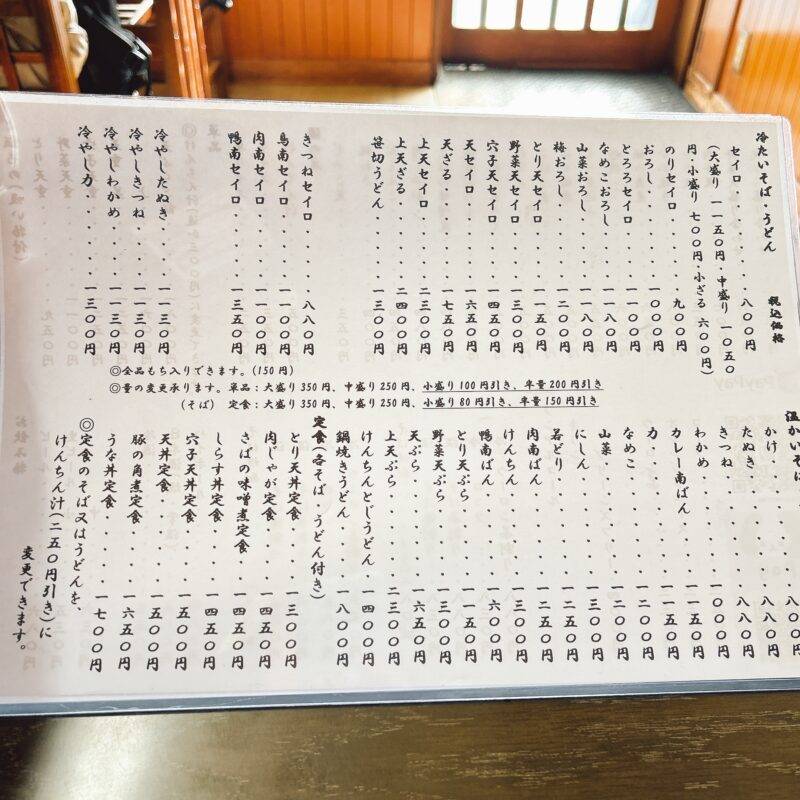 冷たいそば・うどん 税込価格
セイロ・・・・・・八〇〇円
(大盛り 一一五〇円・中盛り 一〇五〇
円・小盛り 七〇〇円・小ざる 六〇〇円)
のりセイロ・・・・・九〇〇円
おろし・・・・・・一〇〇〇円
とろろセイロ・・・・一一〇〇円
なめこおろし・・・・一一八〇円
山菜おろし・・・・・一一八〇円
梅おろし・・・・・一二〇〇円
とり天セイロ・・・・一一五〇円
野菜天セイロ・・・・一三〇〇円
穴子天セイロ・・・・一四五〇円
天セイロ・・・・・一六五〇円
天ざる・・・・・・一七五〇円
上天セイロ・・・・・二三〇〇円
上天ざる・・・・・二四〇〇円
笹切うどん・・・・・一三〇〇円
きつねセイロ・・・・八八〇円
鳥南セイロ・・・・・一一〇〇円
肉南セイロ・・・・・一一〇〇円
鴨南セイロ・・・・・一三五〇円
冷やしたぬき・・・・一一三〇円
冷やしきつね・・・・一一三〇円
冷やしわかめ・・・・一一三〇円
冷やし力・・・・・一三〇〇円
◎全品もち入りできます。(150円)
◎量の変更承ります。単品:大盛り350円、中盛り250円、小盛り100円引き、半量200円引き
(そば) 定食:大盛り350円、中盛り250円、小盛り80円引き、半量150円引き
温かいそば
かけ・・・・・・八〇〇円
たぬき・・・・・・八八〇円
きつね・・・・・・八八〇円
わかめ・・・・・・一〇〇〇円
カレー南ばん・・・・一一五〇円
力・・・・・・・一一五〇円
なめこ・・・・・・一二〇〇円
山菜・・・・・・一二〇〇円
にしん・・・・・・一三〇〇円
若どり・・・・・・一二五〇円
肉南ばん・・・・・一二五〇円
けんちん・・・・・一三〇〇円
鴨南ばん・・・・・一五〇〇円
とり天ぷら・・・・・一一五〇円
野菜天ぷら・・・・・一三〇〇円
天ぷら・・・・・・一六五〇円
上天ぷら・・・・・二三〇〇円
けんちんとじうどん・・一四〇〇円
鍋焼きうどん・・・・一八〇〇円
定食(各そば・うどん付き)
とり天丼定食・・・・一三〇〇円
肉じゃが定食・・・・一四五〇円
さばの味噌煮定食・・・一四五〇円
しらす丼定食・・・・一四五〇円
穴子天丼定食・・・・一五〇〇円
天丼定食・・・・・一五〇〇円
豚の角煮定食・・・・一六五〇円
うな丼定食・・・・・一七〇〇円
◎定食のそば又はうどんを、
けんちん汁(二五〇円引き)に
変更できます。